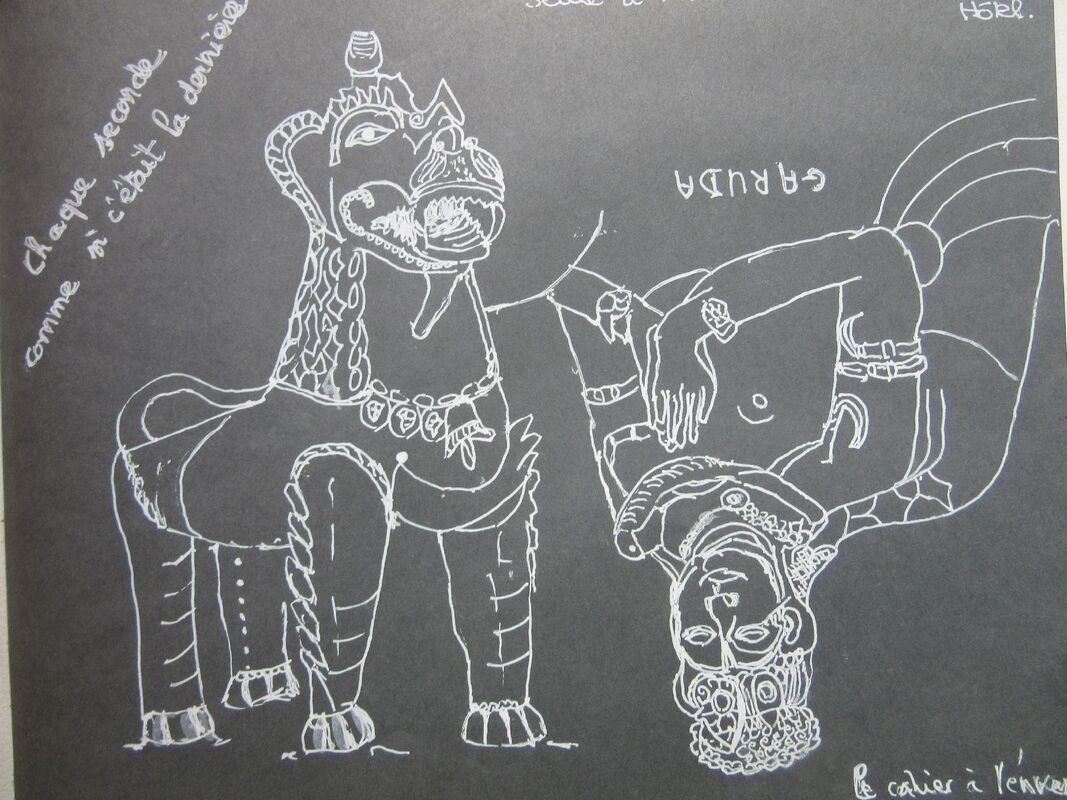 Chaque seconde
comme si c'était la dernière
GARUDA
Le cahier à